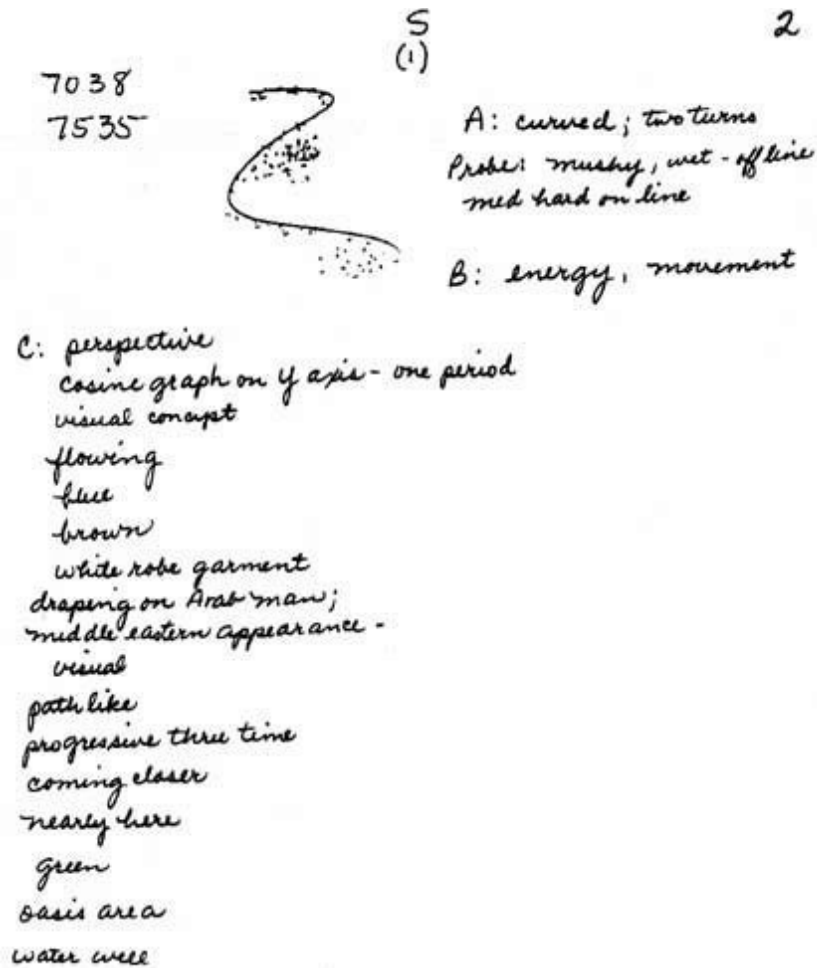 S 2
(1)
7038
7535
A: curved; two turns
Probe: mushy, wet - off line
med hard on line
B: energy, movement
C: perspective
cosine graph on y axis - one period
visual concept
flowing
blue
brown
white robe garment
draping on Arab man;
middle eastern appearance -
visual
path like
progressive three time
coming closer
nearly here
green
oasis area
water well